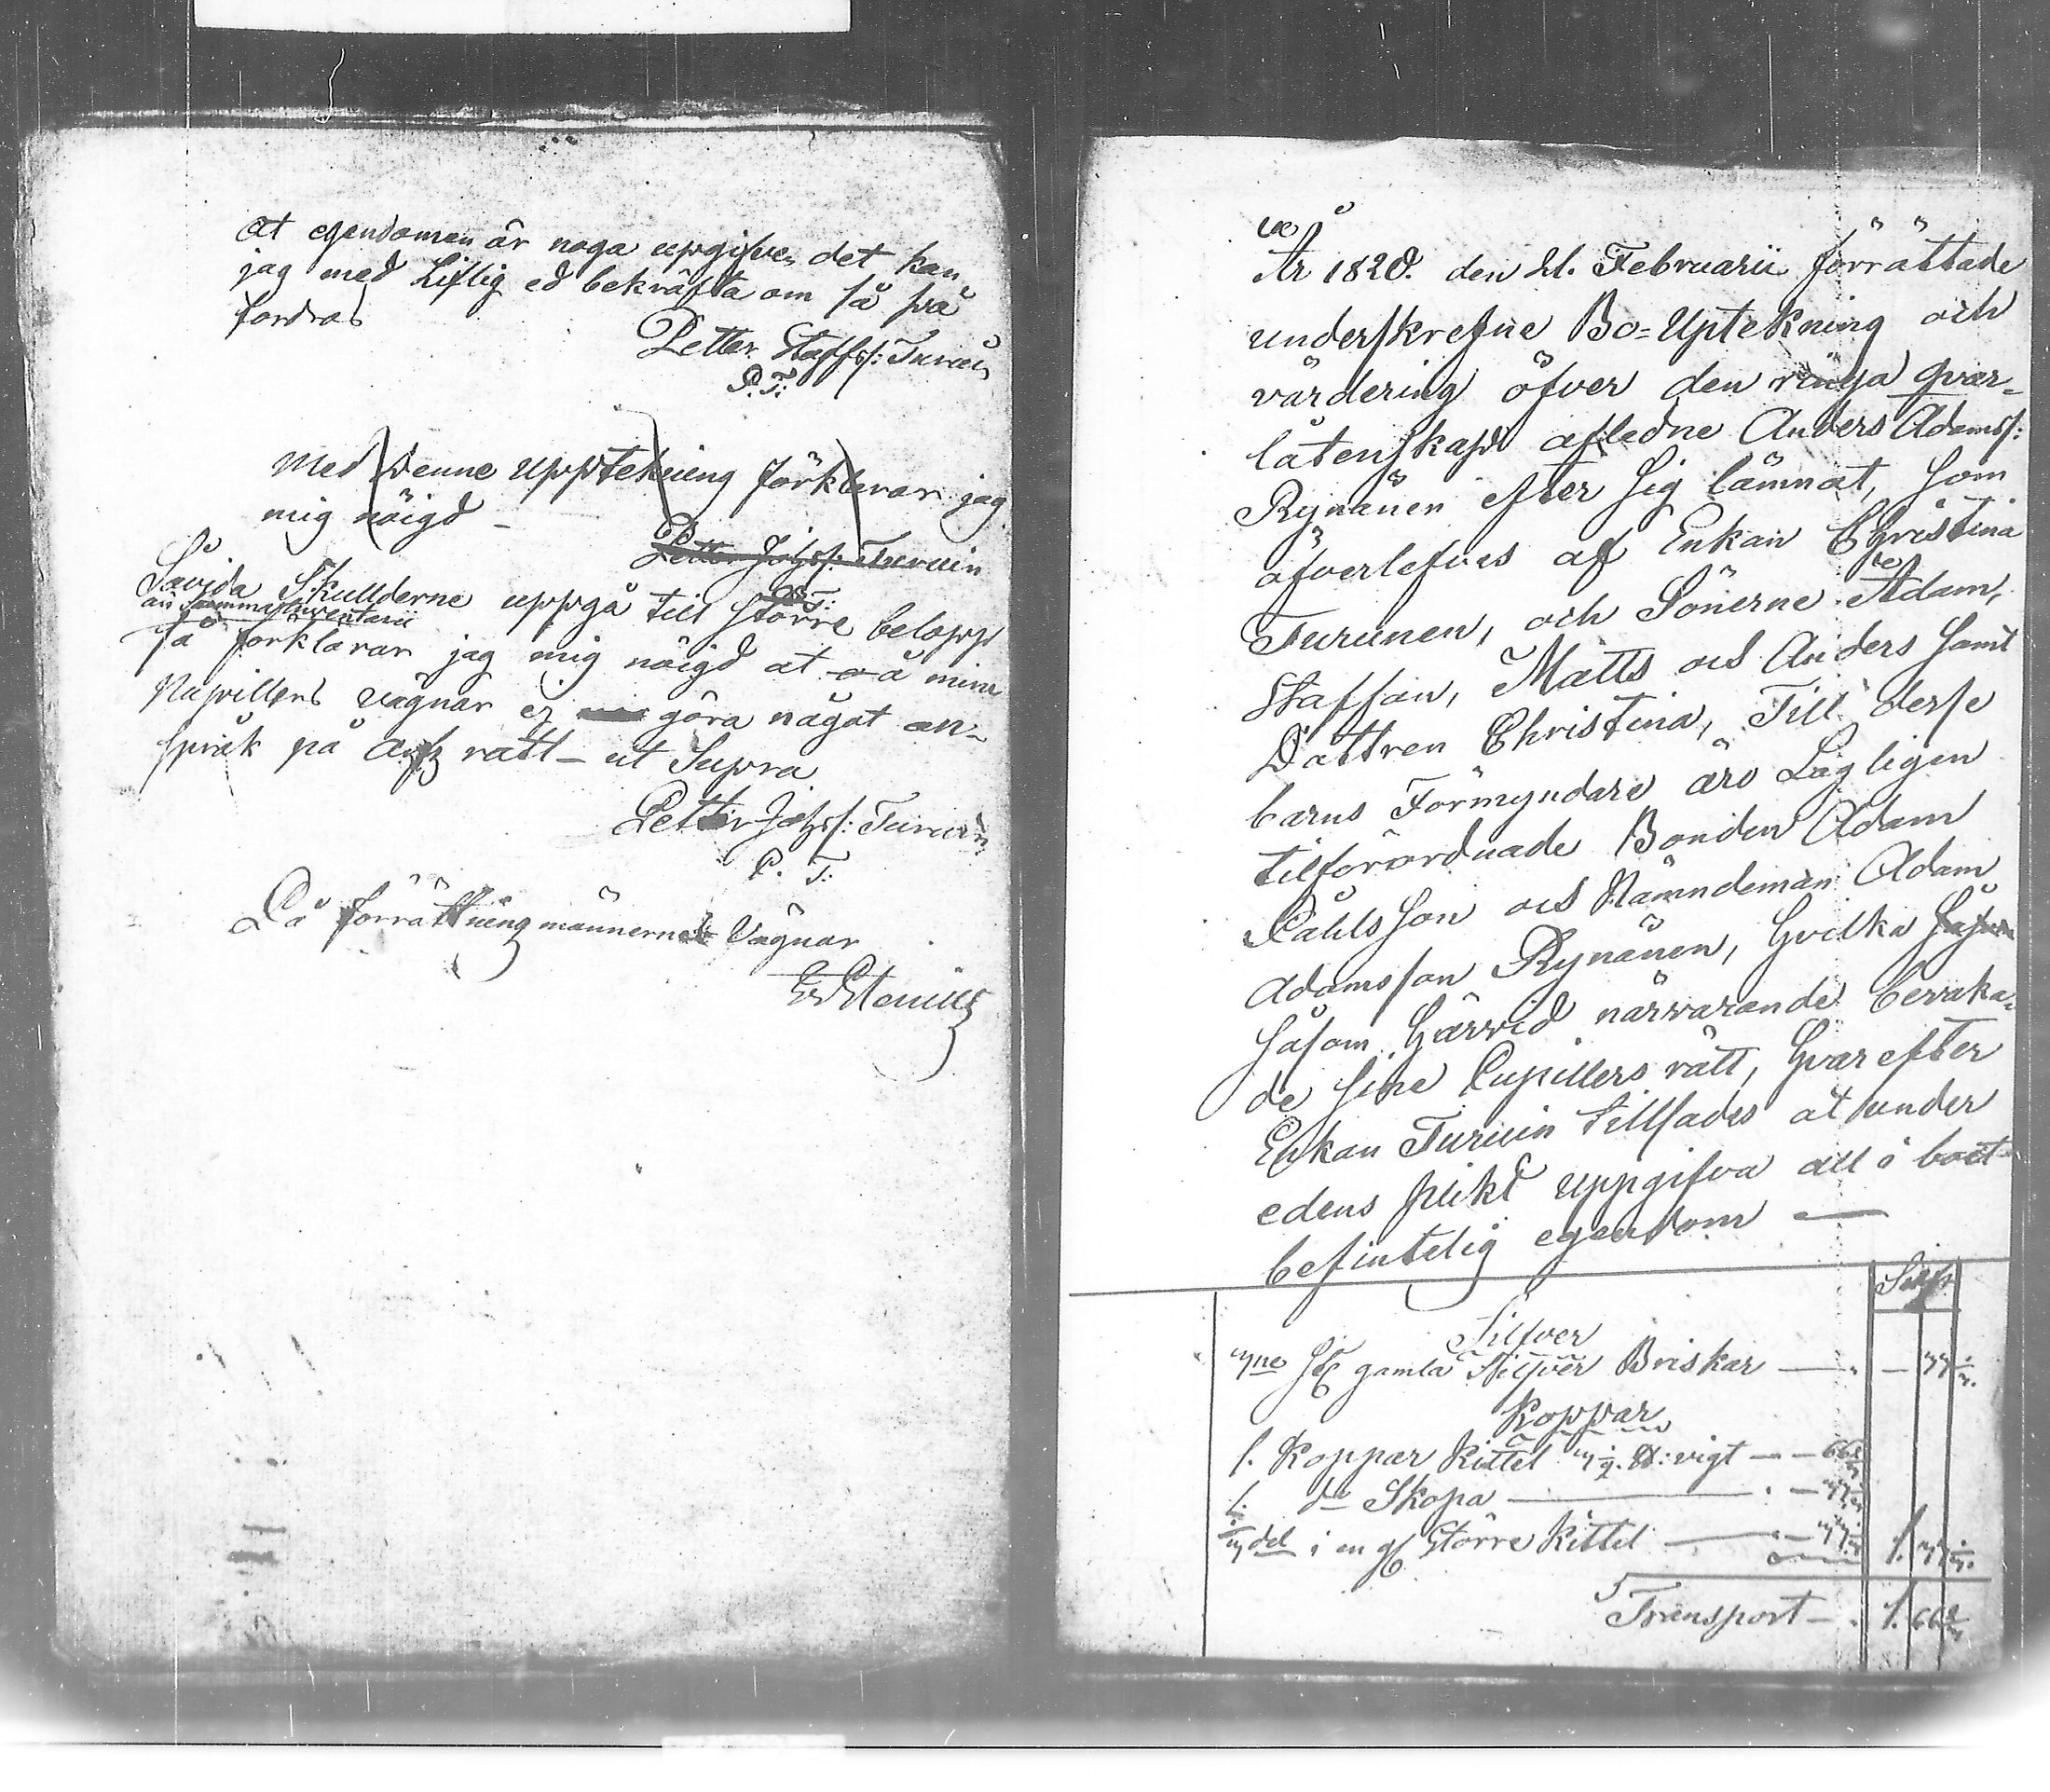 at egendomen är noga uppgifven det kan
jag med Liflig ed bekräfta om så på
fordras
Petter Staffss: Turuin
P. T.
Med denne uppteckning förklarar jag
mig nöigd –
Petter Johss: Turuin
P. T:
Såvida Skullderne uppgå till större belopp
än Summa Inventarii
så förklarar jag mig nöigd at å mine
Pupillers vägnar ej göra något an-
språk på Arfz rätt – ut Supra
Petter Johss: Turuin
P. T.
På förrättningmännernes Vägnar
År 1820. den 21. Februarii förrättade
underskrefne Bo-Uptekning och
värdering öfver den ringa qvar-
låtenskap afledne Anders Adamss:
Rynänen efter sig lämnat, som
öfverlefves af Enkan Christina
Turunen, och Sönerne Adam,
Staffan, Matts och Anders samt
Dottren Christina, Till desse
barns Förmyndare äro Lagligen
tilförordnade Bonden Adam
Påhlsson och Nämndeman Adam
Adamsson Rynänen, hvilka
såsom härvid närvarande bevaka-
de sine Pupillers rätt, hvarefter
Enkan Turuin tillsades at under
edens plikt uppgifva all i boet
befintelig egendom —
Silfr
Silfver
st gamla Silfver Briskar —
Koppar
1. Koppar Kittel ℔: vigt — 66 2/3
1. do Skopa —
del i en Större Kittel —
Transport – 1. 66 2/3